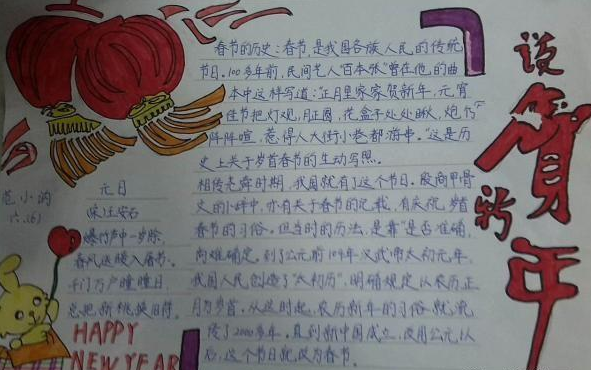 春节的历史:春节,是我国各族人民的传统
节日。100多年前,民间艺人"百本张"曾在他的曲
本中这样写道:"正月里家家贺新年,元宵
佳节把灯观,月正圆,花盒子处处瞅,炮竹
阵阵喧,惹得人大街小巷都游串。"这是历
史上关于岁首春节的生动写照。
相传尧舜时期,我国就有了这个节日。殷商甲骨
文的中,亦有关于春节的记载,有庆祝岁首
春节的习俗。但当时的历法,是靠"是否准确,
尚难确定。到了公元前104年汉武帝太初元年,
我国人民创造了"太初历",明确规定以农历正
月为岁首。从这时起,农历新年的习俗就流
传了2000多年。直到新中国成立,改用公元以
后,这个节日就改为春节。
贺新年
范小
六.(6)
元日
宋王安石
爆竹声中一岁除,
春风送暖入屠苏。
千门万户曈曈日,
总把新桃换旧符。
HAPPY
NEW YEAR